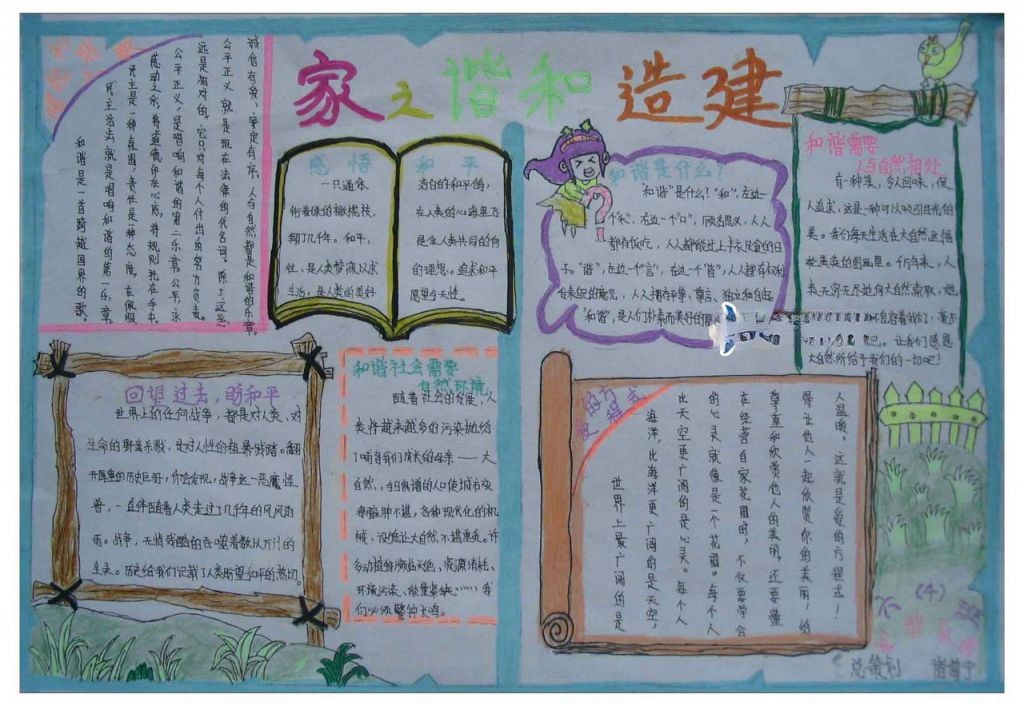 家之谐和造建
诚信有爱、安定有序、人与自然都是和谐的乐章。
公平正义就是现在法律的代名词。除了这些,
远是相对的。它只对每个人付出的努力负责。
公平正义,是唱响和谐的第二乐章。公平,永
感动之余,将道德印在心底,将规则托在手中。
民主是一种氛围,责任是一种态度。在佩服
民主法治就是唱响和谐的第一乐章。
和谐是一首跨越国界的歌。
感悟 和平
一只通体
洁白的和平鸽,
衔着绿的橄榄枝,
在人类的心海里飞
翔了几千年。和平,
是全人类共同的向
往,是人类梦寐以求
的理想。追求和平
生活,是人类的美好
愿望与天性。
和谐是什么?
"和谐"是什么?"和",左边一
个"禾",右边一个"口",顾名思义,人人
都有饭吃,人人都能过上丰衣足食的日
子。"谐",左边一个"言",右边一个"皆",人人拥有
和谐需要
人与自然相处
有一种美,令人回味,使
人追求,这是一种可以吸引目光的
美。我们每天生活在大自然这幅
的图画里。千百年来,人
类无穷无尽地向大自然索取,
让我们感恩
大自然所给予我们的一切吧!
回望过去,盼和平
世界上的任何战争,都是对人类、对
生命的野蛮杀戮,是对人性的粗暴践踏。翻
开厚重的历史巨册,你会发现,战争这一恶魔怪
兽,一直伴随着人类走过了几千年的风风雨
雨。战争,无情残酷的吞噬着数以万计的
生灵。历史给我们记载了人类盼望和平的热切。
和谐社会需要
自然环境
随着社会的发展,人
类将越来越多的污染抛给
了哺育我们成长的母亲——大
自然,
拥肿不堪,各种现代化的机
械、设施让大自然不堪重负。许
多动植物濒临灭绝,资源消耗、
环境污染、能量紧缺……我
们必须警钟长鸣。
爱的方程式
人温暖。这就是爱的方程式!
得让他人一起欣赏你的美丽,给
尊重和欣赏他人的美丽,还要懂
在经营自家花园时,不仅要学会
的心灵就像是一个花园。每个人
比天空更广阔的是心灵。每个人
海洋,比海洋更广阔的是天空,
世界上最广阔的是
六(4)班
总策划